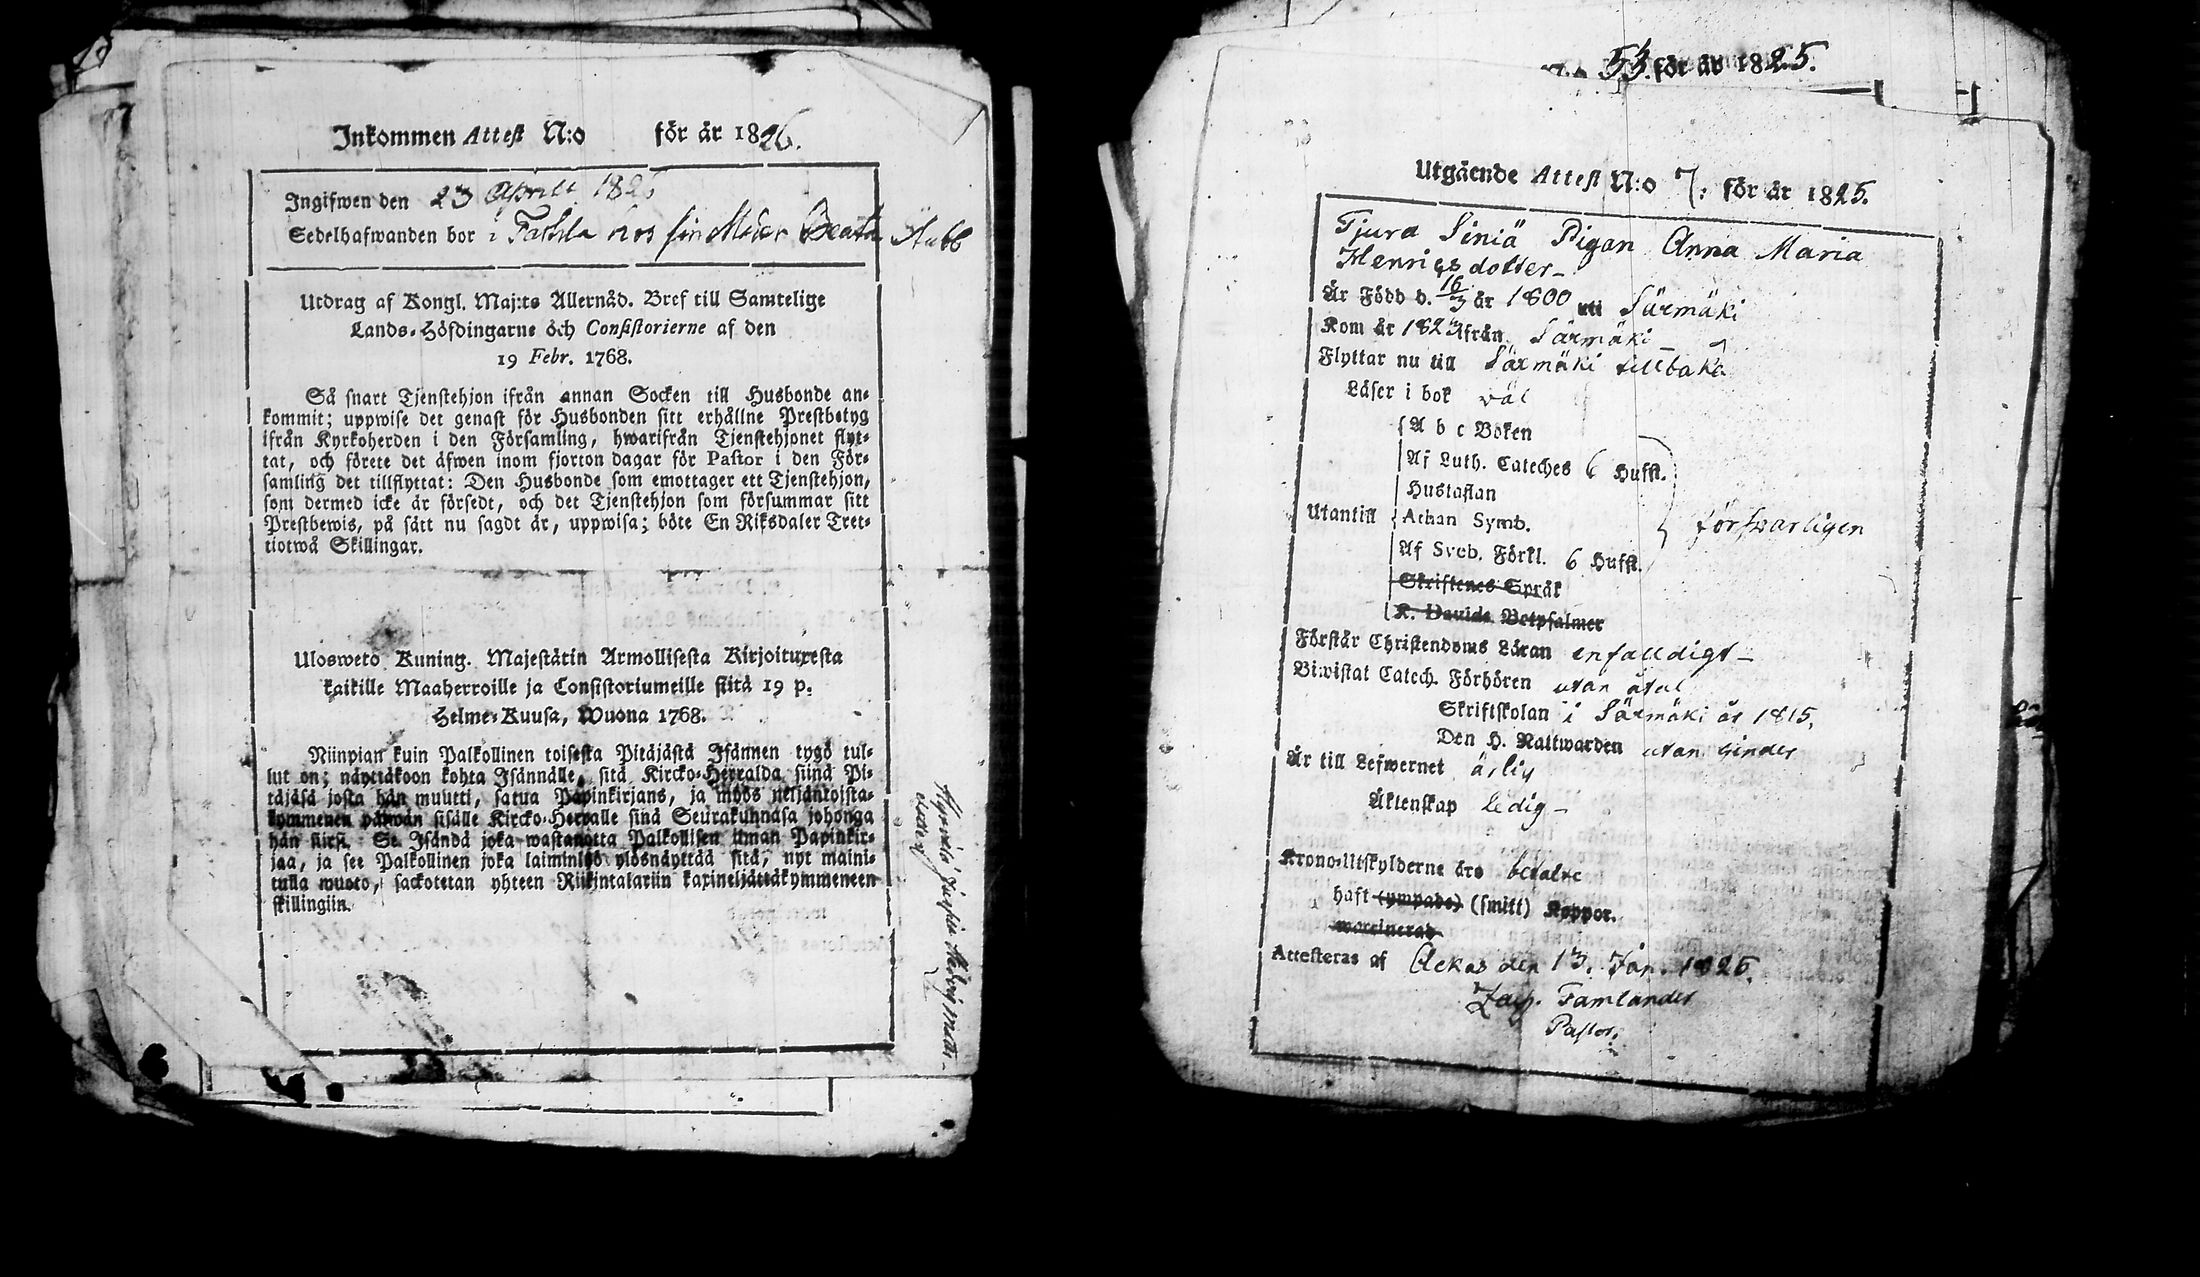 Inkommen Attest N:o för år 1826.
Ingifwen den 23 Aprill 182
Sedelhafwanden bor i hos sin Moder Beata Stubb
Utdrag af Kongl. Maj:ts Allernåd. Bref till Samtelige
Lands-Höfdingarne och Consistorierne af den
19 Febr. 1768.
Så snart Tjenstehjon ifrån annan Socken till Husbonde an-
kommit; uppwise det genast för Husbonden sitt erhållne Prestbetyg
ifrån Kyrkoherden i den Församling, hwarifrån Tjenstehjonet flyt-
tat, och förete det äfwen inom fjorton dagar för Pastor i den För-
samling det tillflyttat: Den Husbonde som emottager ett Tjenstehjon,
som dermed icke är försedt, och det Tjenstehjon som försummar sitt
Prestbewis, på sätt nu sagdt är, uppwisa; böte En Riksdaler Tret-
tiotwå Skillingar.
Ulosweto Kuning. Majestätin Armollisesta Kirjoituxesta
kaikille Maaherroille ja Consistoriumeille siitä 19 p.
Helme-Kuusa, Wuona 1768.
Niinpian kuin Palkollinen toisesta Pitäjästä Isännen tygö tul-
lut on; näyttäkoon kohta Isännälle, sitä Kircko-Herralda siinä Pi-
täjäsä josta hän muutti, satua Papinkirjans, ja myös neljäntoista-
kymmenen päiwän sisälle Kircko-Herralle siinä Seurakunnasa johonga
hän siirsi. Se Isändä joka wastanotta Palkollisen ilman Papinkir-
jaa, ja see Palkollinen joka laiminlyö ylösnäyttää sitä, nyt maini-
tulla muoto, sackotetan yhteen Riikintalariin kaxineljättäkymmeneen
skillingiin.
53. för år 1825.
Utgående Attest N:o 7. för år 1825.
Tjura Siniä Pigan Anna Maria
Henricsdotter
Är Född d. 16/3 år 1800 uti Särmäki
Kom år 1823 ifrån Särmäki
Flyttar nu till Särmäki tillbaka
Läser i bok väl
A b c Boken
Af Luth. Cateches 6 Hufst.
Hustaflan
Utantill Athan Symb. försvarligen
Af Sveb. Förkl. 6 Hufst.
Skriftenes Språk
K. Davids Botpsalmer
Förstår Christendoms Läran enfalldigt
Biwistat Catech. Förhören utan åtal
Skriftskolan i Särmäki år 1815.
Den H. Nattwarden utan hinder
Är till Lefwernet ärlig
Äktenskap ledig
Krono-Utskylderne äro betalte
haft (ympade) (smitt) Koppor.
waccinerad
Attesteras af Ackas den 13. Jan. 1825.
Zach. Famlander
Pastor.